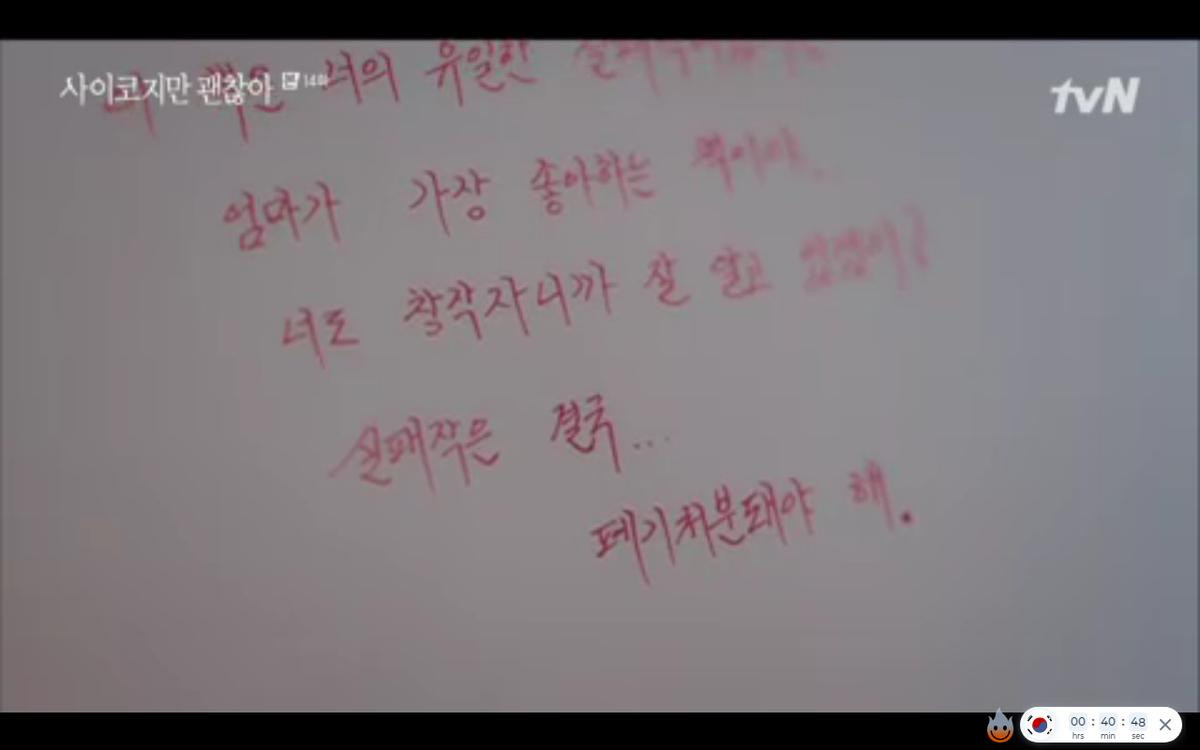 사이코지만 괜찮아 14회
tvN
너의 유일한
엄마가 가장 좋아하는 책이야...
너도 창작자니까 잘 알고 있겠지?
실패작은 결국...
폐기처분돼야 해.
00 : 40 : 48
hrs min sec